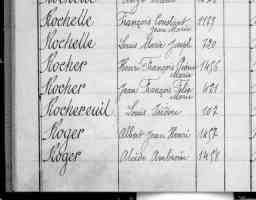 Rochelle François Constant 1189
Jean Marie
Rochelle Louis Marie Joseph 720
Rocher Henri François 1456
Marie
Rocher Jean François Félix 421
Marie
Rochereuil Louis Isidore 107
Roger Albert Jean Henri 1457
Roger Alcide Ambroise 1458